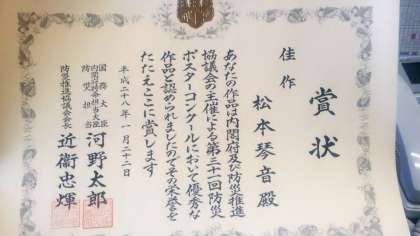 賞状
佳作
松本琴音殿
あなたの作品は内閣府及び防災推進
協議会の主催による第三十一回防災
ポスターコンクールにおいて優秀な
作品と認められましたのでその栄誉を
たたえここに賞します
平成二十八年一月二十二日
国務大臣
内閣府特命担当大臣
防災担当
河野太郎
防災推進協議会会長
近衞忠煇